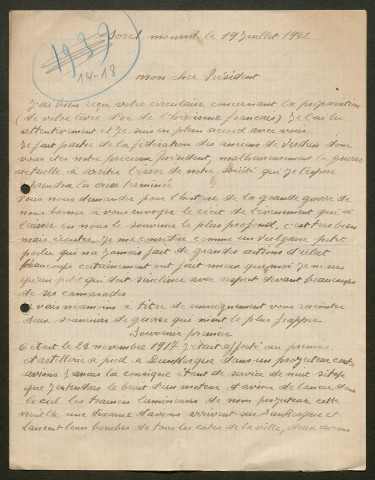 Sorel moussel le 19 Juillet 1942
1939
14-18
mon cher Président
J'ai bien reçu votre circulaire concernant la préparation
(de votre livre d'or de l'héroïsme français) Je l'ai lu
attentivement et je suis en plein accord avec vous
Je fait partie de la fédération des anciens de Verdun dont
vous etes notre précieux président, malheureusement la guerre
actuelle à arrêter l'essor de notre société qui je l'espère
reprendra la crise terminée
Vous nous demander pour l'hist de la grande guerre de
nous borner à vous envoyer le récit de l'évenement qui à
laissée en nous le souvenir le plus profond, c'est très bien
mais écouter je me considère comme un vulgaire petit
poilu qui na jamais fait de grandes actions d'éclat
beaucoup certainement ont fait mieux que moi je ne suis
qu'un petit qui doit s'incliner avec respect devant beaucoup
de ses camarades
Je vais néamoins à titre de renseignement vous raconter
deux souvenirs de guerre qui mont le plus frapper
Souvenir premier
C'était le 24 novembre 1917 J'étais affecté au premier
d'artillerie à pied à Dunkerque dans un projecteur contre
avions J'avais la consigne étant de service de nuit sitôt
que j'entendrai le bruit d'un moteur d'avion de lancer dans
le ciel les traînées lumineuses de mon projecteur, cette
nuit là une dizaine d'avions arrivent sur Dunkerque et
lancent leurs bombes de tous les cotés de la ville, deux avions